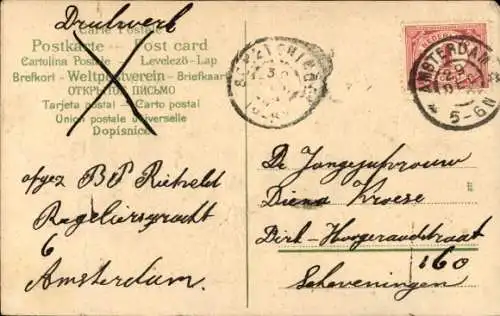 Drukwerk
Carte Postale
Postkarte Post card
Cartolina Postale - Levelező-Lap
Brefkort - Weltpostverein - Briefkaart
ОТКРЫТОЕ ПИСЬМО
Tarjeta postal - Carto postal
Union postale universelle
Dopisnice
AMSTERDAM
5-6N
afgez B P Rietveld
Regeliersgracht
6
Amsterdam.
De Jongejufvrouw
Diena Kroese
Dirk-Hoogeraadstraat
160
Scheveningen